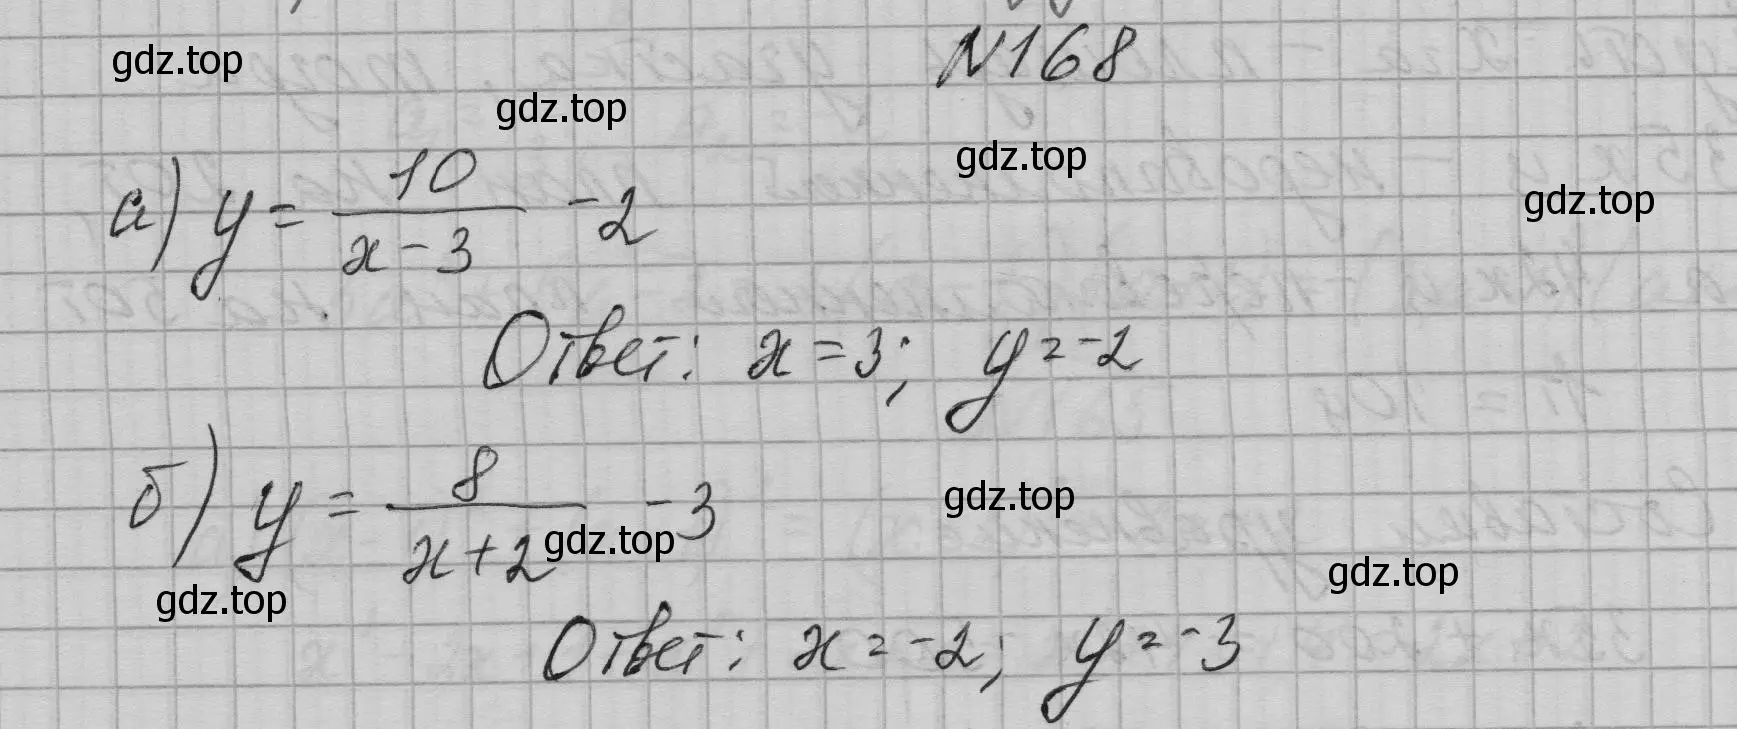 N168
gdz.top
gdz.top
gdz.top
gdz.top
а) y = 10/(x - 3) - 2
Ответ: x = 3; y = -2
б) y = 8/(x + 2) - 3
gdz.top
gdz.top
gdz.top
gdz.top
Ответ: x = -2; y = -3